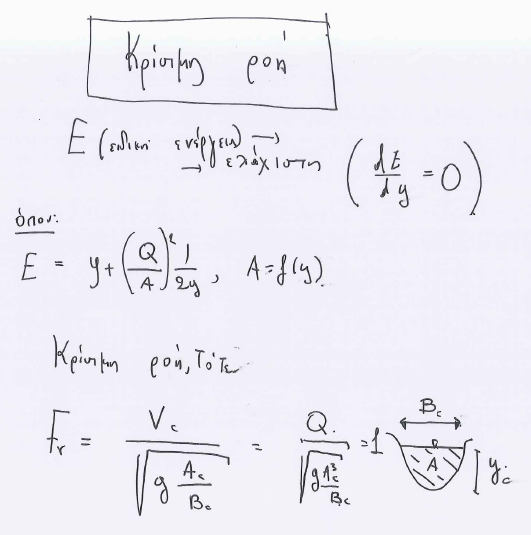 Κρίσιμη ροή
E (ειδική ενέργεια) →
→ ελάχιστη (dE/dy = 0)
όπου:
E = y + (Q/A)² 1/2g, A = f(y)
Κρίσιμη ροή, Τότε
Fr = Vc/√(g Ac/Bc) = Q/√(g Ac³/Bc) = 1
Bc
A
yc